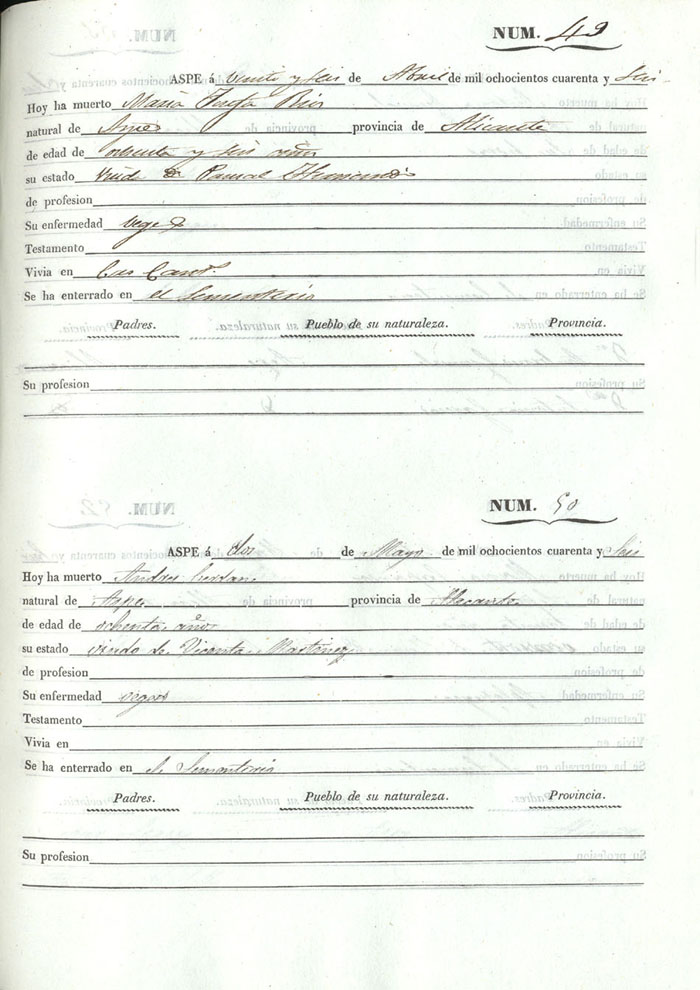 NUM. 49
ASPE á Veinte y seis de Abril de mil ochocientos cuarenta y seis
Hoy ha muerto Maria
natural de Aspe provincia de Alicante
de edad de ochenta y seis años
su estado Viuda de Pascual
de profesion
Su enfermedad vegez
Testamento
Vivia en
Se ha enterrado en el Sementerio
Padres. Pueblo de su naturaleza. Provincia.
Su profesion
NUM. 50
ASPE á dos de Mayo de mil ochocientos cuarenta y seis
Hoy ha muerto Andres
natural de Aspe provincia de Alicante
de edad de ochenta años
su estado viudo de Vicenta Martinez
de profesion
Su enfermedad
Testamento
Vivia en
Se ha enterrado en el Sementerio
Padres. Pueblo de su naturaleza. Provincia.
Su profesion